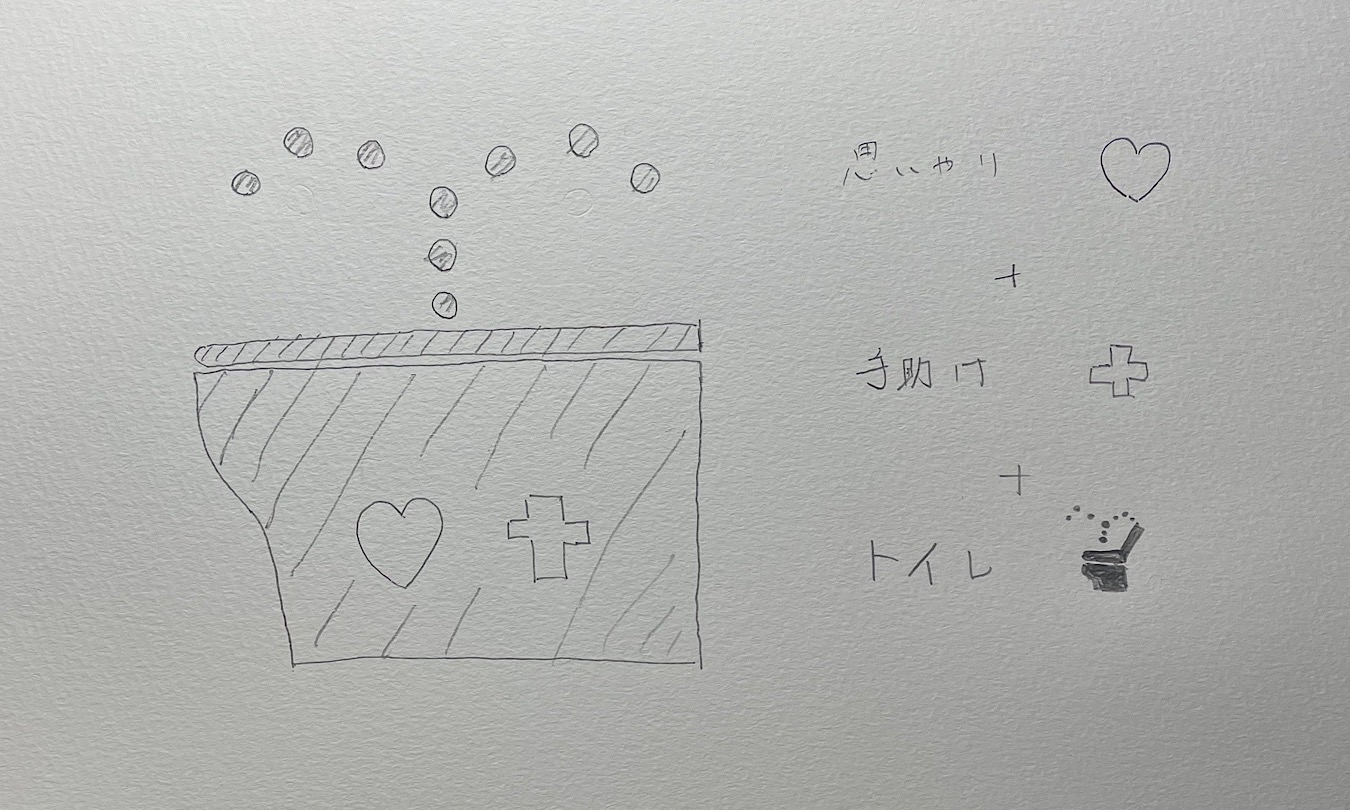 思いやり
+
手助け
+
トイレ